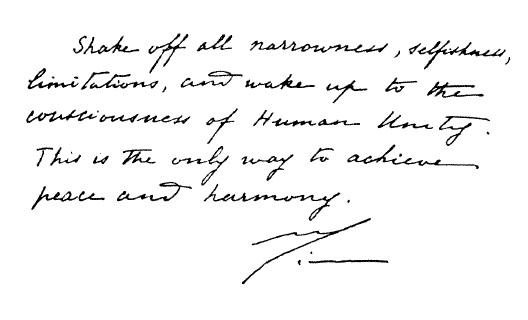 Shake off all narrowness, selfishness,
limitations, and wake up to the
consciousness of Human Unity.
This is the only way to achieve
peace and harmony.